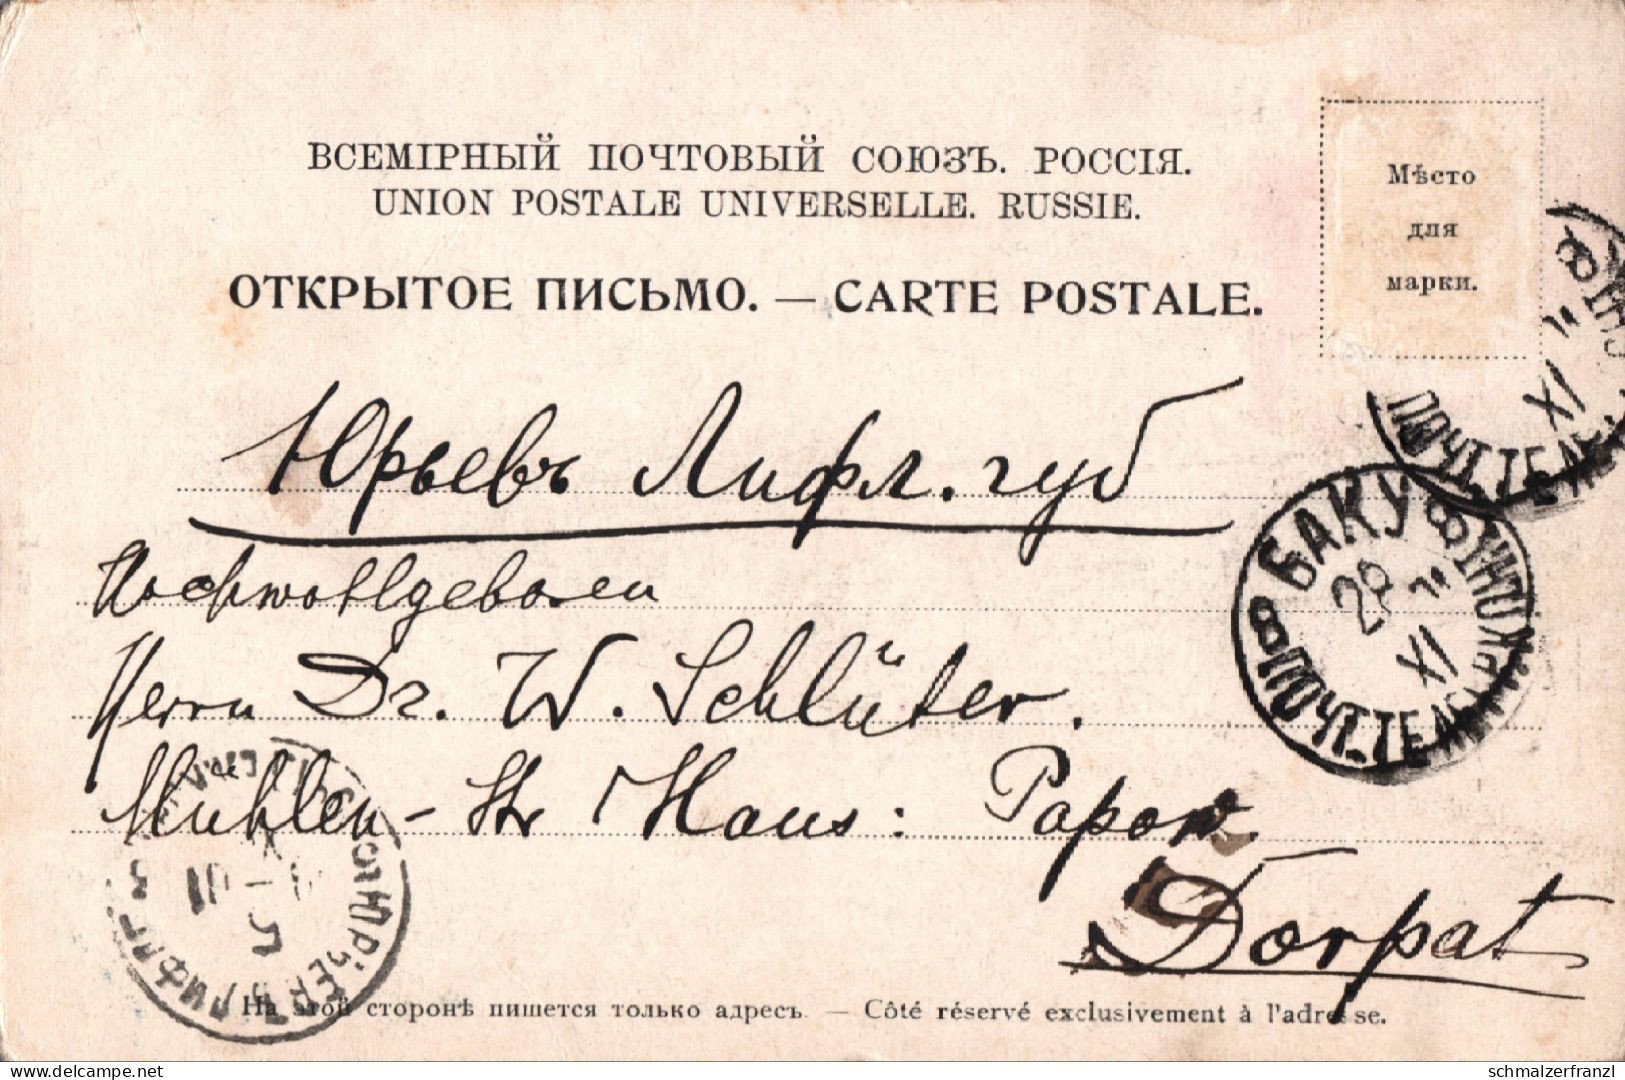 ВСЕМІРНЫЙ ПОЧТОВЫЙ СОЮЗЪ. РОССІЯ.
UNION POSTALE UNIVERSELLE. RUSSIE.
ОТКРЫТОЕ ПИСЬМО. — CARTE POSTALE.
Мѣсто
для
марки.
Юрьевъ Лифл. губ
Hochwohlgeboren
Herrn Dr. W. Schlüter.
Mühlen-Str Haus: Popow.
Dorpat
БАКУ
29 XI
ПОЧТ. ТЕЛ
XI
ПОЧТ. ТЕЛ
ЮРЬЕВ ЛИФЛ
На этой сторонѣ пишется только адресъ. — Côté réservé exclusivement à l'adresse.
delcampe.net
schmalzerfranzl